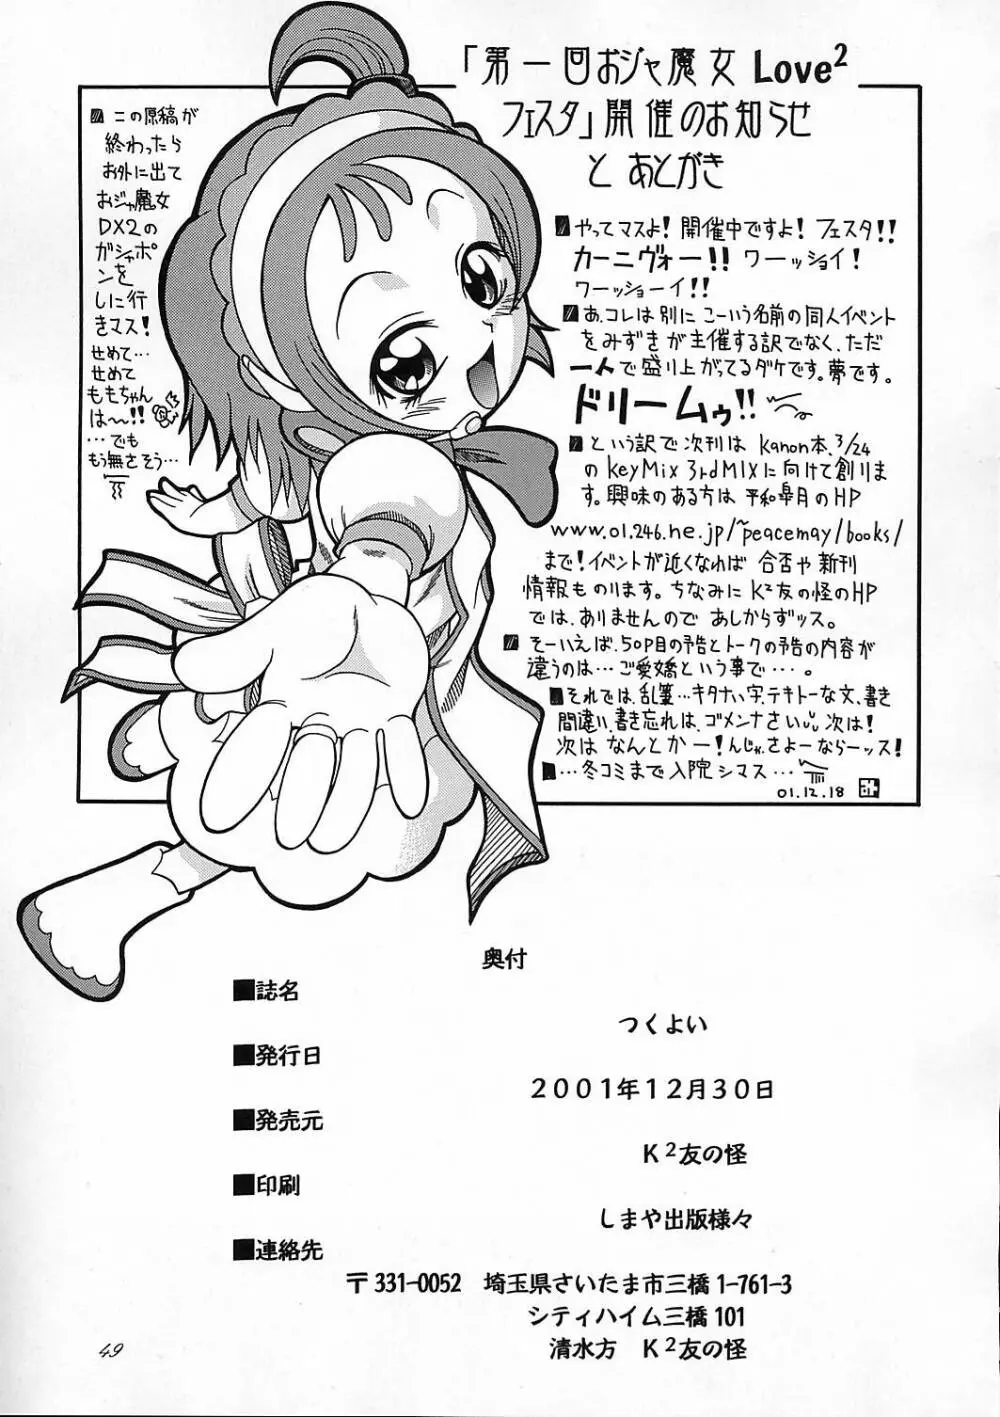 「第一回おジャ魔女 Love²
フェスタ」開催のお知らせ
と あとがき
■ この原稿が
終わったら
お外に出て
おジャ魔女
DX2の
ガシャポ
ンを
しに行
きマス!
せめて…
せめて
ももちゃん
は〜!!
…でも
もう無さそう…
■ やってマスよ! 開催中ですよ! フェスタ!!
カーニヴォー!! ワーッショイ!
ワーッショーイ!!
■ あ、コレは別にこーいう名前の同人イベント
をみずきが主催する訳でなく、ただ
一人で盛り上がってるダケです。夢です。
ドリームゥ!!
■ という訳で次刊は Kanon本、3/24
の KeyMix 3rdMIXに向けて創りま
す。興味のある方は 平和皐月のHP
www.01.246.ne.jp/~peacemay/books/
まで! イベントが近くなれば 合否や新刊
情報ものります。ちなみに K²友の怪のHP
では、ありませんので あしからずッス。
■ そーいえば、50P目の予告とトークの予告の内容が
違うのは…ご愛嬌という事で…。
■ それでは、乱筆…キタナい字、テキトーな文、書き
間違い、書き忘れは、ゴメンナさい 次は!
次は なんとかー! んじゃ、さよーならーッス!
■ …冬コミまで入院シマス…
01.12.18
奥付
■誌名
つくよい
■発行日
2001年12月30日
■発売元
K²友の怪
■印刷
しまや出版様々
■連絡先
〒331-0052 埼玉県さいたま市三橋1-761-3
シティハイム三橋101
清水方 K²友の怪
49